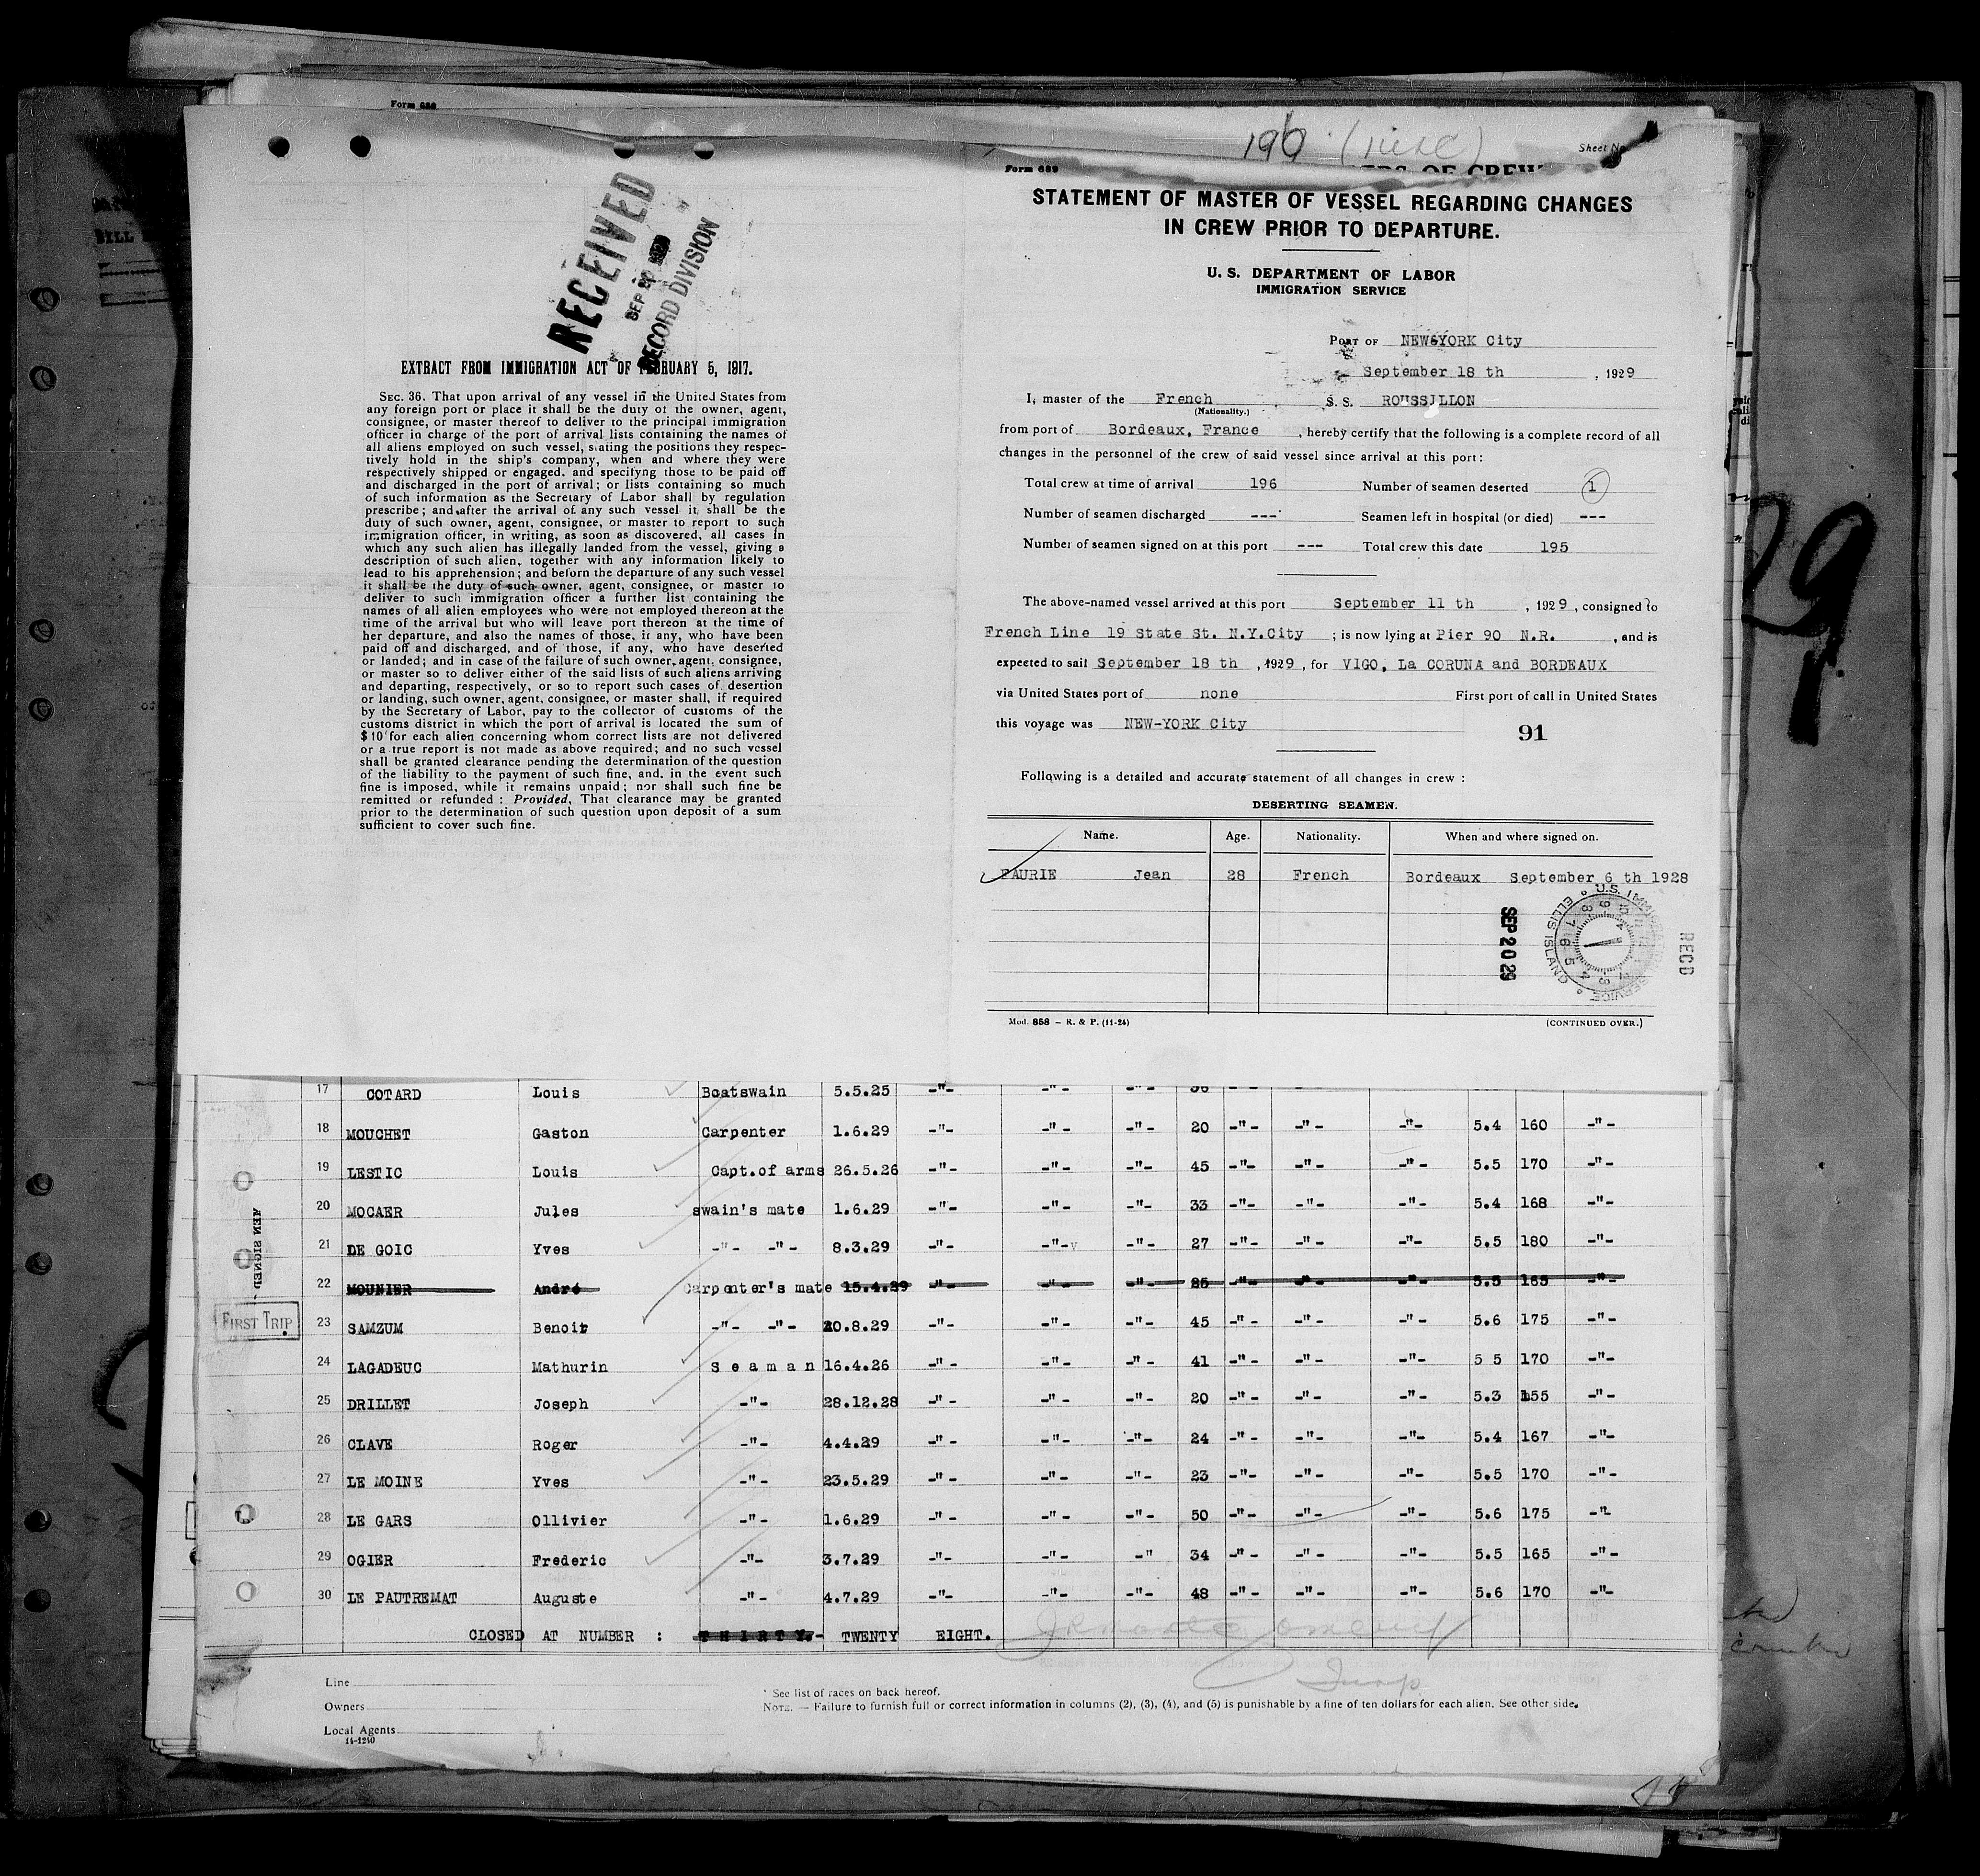 Form 689
196
Sheet No
RECEIVED
SEP 20 1929
RECORD DIVISION
EXTRACT FROM IMMIGRATION ACT OF FEBRUARY 5, 1917.
SEC. 36. That upon arrival of any vessel in the United States from
any foreign port or place it shall be the duty of the owner, agent,
consignee, or master thereof to deliver to the principal immigration
officer in charge of the port of arrival lists containing the names of
all aliens employed on such vessel, stating the positions they respec-
tively hold in the ship's company, when and where they were
respectively shipped or engaged, and specifyng those to be paid off
and discharged in the port of arrival; or lists containing so much
of such information as the Secretary of Labor shall by regulation
prescribe; and after the arrival of any such vessel it shall be the
duty of such owner, agent, consignee, or master to report to such
immigration officer, in writing, as soon as discovered, all cases in
which any such alien has illegally landed from the vessel, giving a
description of such alien, together with any information likely to
lead to his apprehension; and beforn the departure of any such vessel
it shall be the duty of such owner, agent, consignee, or master to
deliver to such immigration officer a further list containing the
names of all alien employees who were not employed thereon at the
time of the arrival but who will leave port thereon at the time of
her departure, and also the names of those, if any, who have been
paid off and discharged, and of those, if any, who have deserted
or landed; and in case of the failure of such owner, agent, consignee,
or master so to deliver either of the said lists of such aliens arriving
and departing, respectively, or so to report such cases of desertion
or landing, such owner, agent, consignee, or master shall, if required
by the Secretary of Labor, pay to the collector of customs of the
customs district in which the port of arrival is located the sum of
$10 for each alien concerning whom correct lists are not delivered
or a true report is not made as above required; and no such vessel
shall be granted clearance pending the determination of the question
of the liability to the payment of such fine, and, in the event such
fine is imposed, while it remains unpaid; nor shall such fine be
remitted or refunded: Provided, That clearance may be granted
prior to the determination of such question upon deposit of a sum
sufficient to cover such fine.
Form 689
STATEMENT OF MASTER OF VESSEL REGARDING CHANGES
IN CREW PRIOR TO DEPARTURE.
U. S. DEPARTMENT OF LABOR
IMMIGRATION SERVICE
PORT OF NEW-YORK City
September 18 th , 1929
I, master of the French S. S. ROUSSILLON
(Nationality.)
from port of Bordeaux, France , hereby certify that the following is a complete record of all
changes in the personnel of the crew of said vessel since arrival at this port:
Total crew at time of arrival 196 Number of seamen deserted 1
Number of seamen discharged --- Seamen left in hospital (or died) ---
Number of seamen signed on at this port --- Total crew this date 195
The above-named vessel arrived at this port September 11 th , 1929, consigned to
French Line 19 State St. N.Y.City ; is now lying at Pier 90 N.R. , and is
expected to sail September 18 th , 1929, for VIGO, La CORUNA and BORDEAUX
via United States port of none First port of call in United States
this voyage was NEW-YORK City
91
Following is a detailed and accurate statement of all changes in crew :
DESERTING SEAMEN.
Name. Age. Nationality. When and where signed on.
FAURIE Jean 28 French Bordeaux September 6 th 1928
SEP 20 29
U.S. IMMIGRATION SERVICE ELLIS ISLAND
RECD
Mod. 858 — R. & P. (11-24) (CONTINUED OVER.)
17 COTARD Louis Boatswain 5.5.25 -"- -"- -"- -"- -"-
18 MOUCHET Gaston Carpenter 1.6.29 -"- -"- -"- 20 -"- -"- -"- 5.4 160 -"-
19 LESTIC Louis Capt.of arms 26.5.26 -"- -"- -"- 45 -"- -"- -"- 5.5 170 -"-
20 MOCAER Jules swain's mate 1.6.29 -"- -"- -"- 33 -"- -"- -"- 5.4 168 -"-
21 DE GOIC Yves -"- -"- 8.3.29 -"- -"- -"- 27 -"- -"- -"- 5.5 180 -"-
22 MOUNIER André Carpenter's mate 15.4.29 -"- -"- -"- 25 -"- -"- -"- 5.5 165 -"-
FIRST TRIP
23 SAMZUM Benoit -"- -"- 20.8.29 -"- -"- -"- 45 -"- -"- -"- 5.6 175 -"-
24 LAGADEUC Mathurin Seaman 16.4.26 -"- -"- -"- 41 -"- -"- -"- 5 5 170 -"-
25 DRILLET Joseph -"- 28.12.28 -"- -"- -"- 20 -"- -"- -"- 5.3 155 -"-
26 CLAVE Roger -"- 4.4.29 -"- -"- -"- 24 -"- -"- -"- 5.4 167 -"-
27 LE MOINE Yves -"- 23.5.29 -"- -"- -"- 23 -"- -"- -"- 5.5 170 -"-
28 LE GARS Ollivier -"- 1.6.29 -"- -"- -"- 50 -"- -"- -"- 5.6 175 -"-
29 OGIER Frederic -"- 3.7.29 -"- -"- -" 34 -"- -"- -"- 5.5 165 -"-
30 LE PAUTREMAT Auguste -"- 4.7.29 -"- -"- -"- 48 -"- -"- -"- 5.6 170 -"-
CLOSED AT NUMBER : THIRTY.- TWENTY EIGHT.
Line
Owners
Local Agents
14-1240
* See list of races on back hereof.
NOTE. — Failure to furnish full or correct information in columns (2), (3), (4), and (5) is punishable by a fine of ten dollars for each alien. See other side.